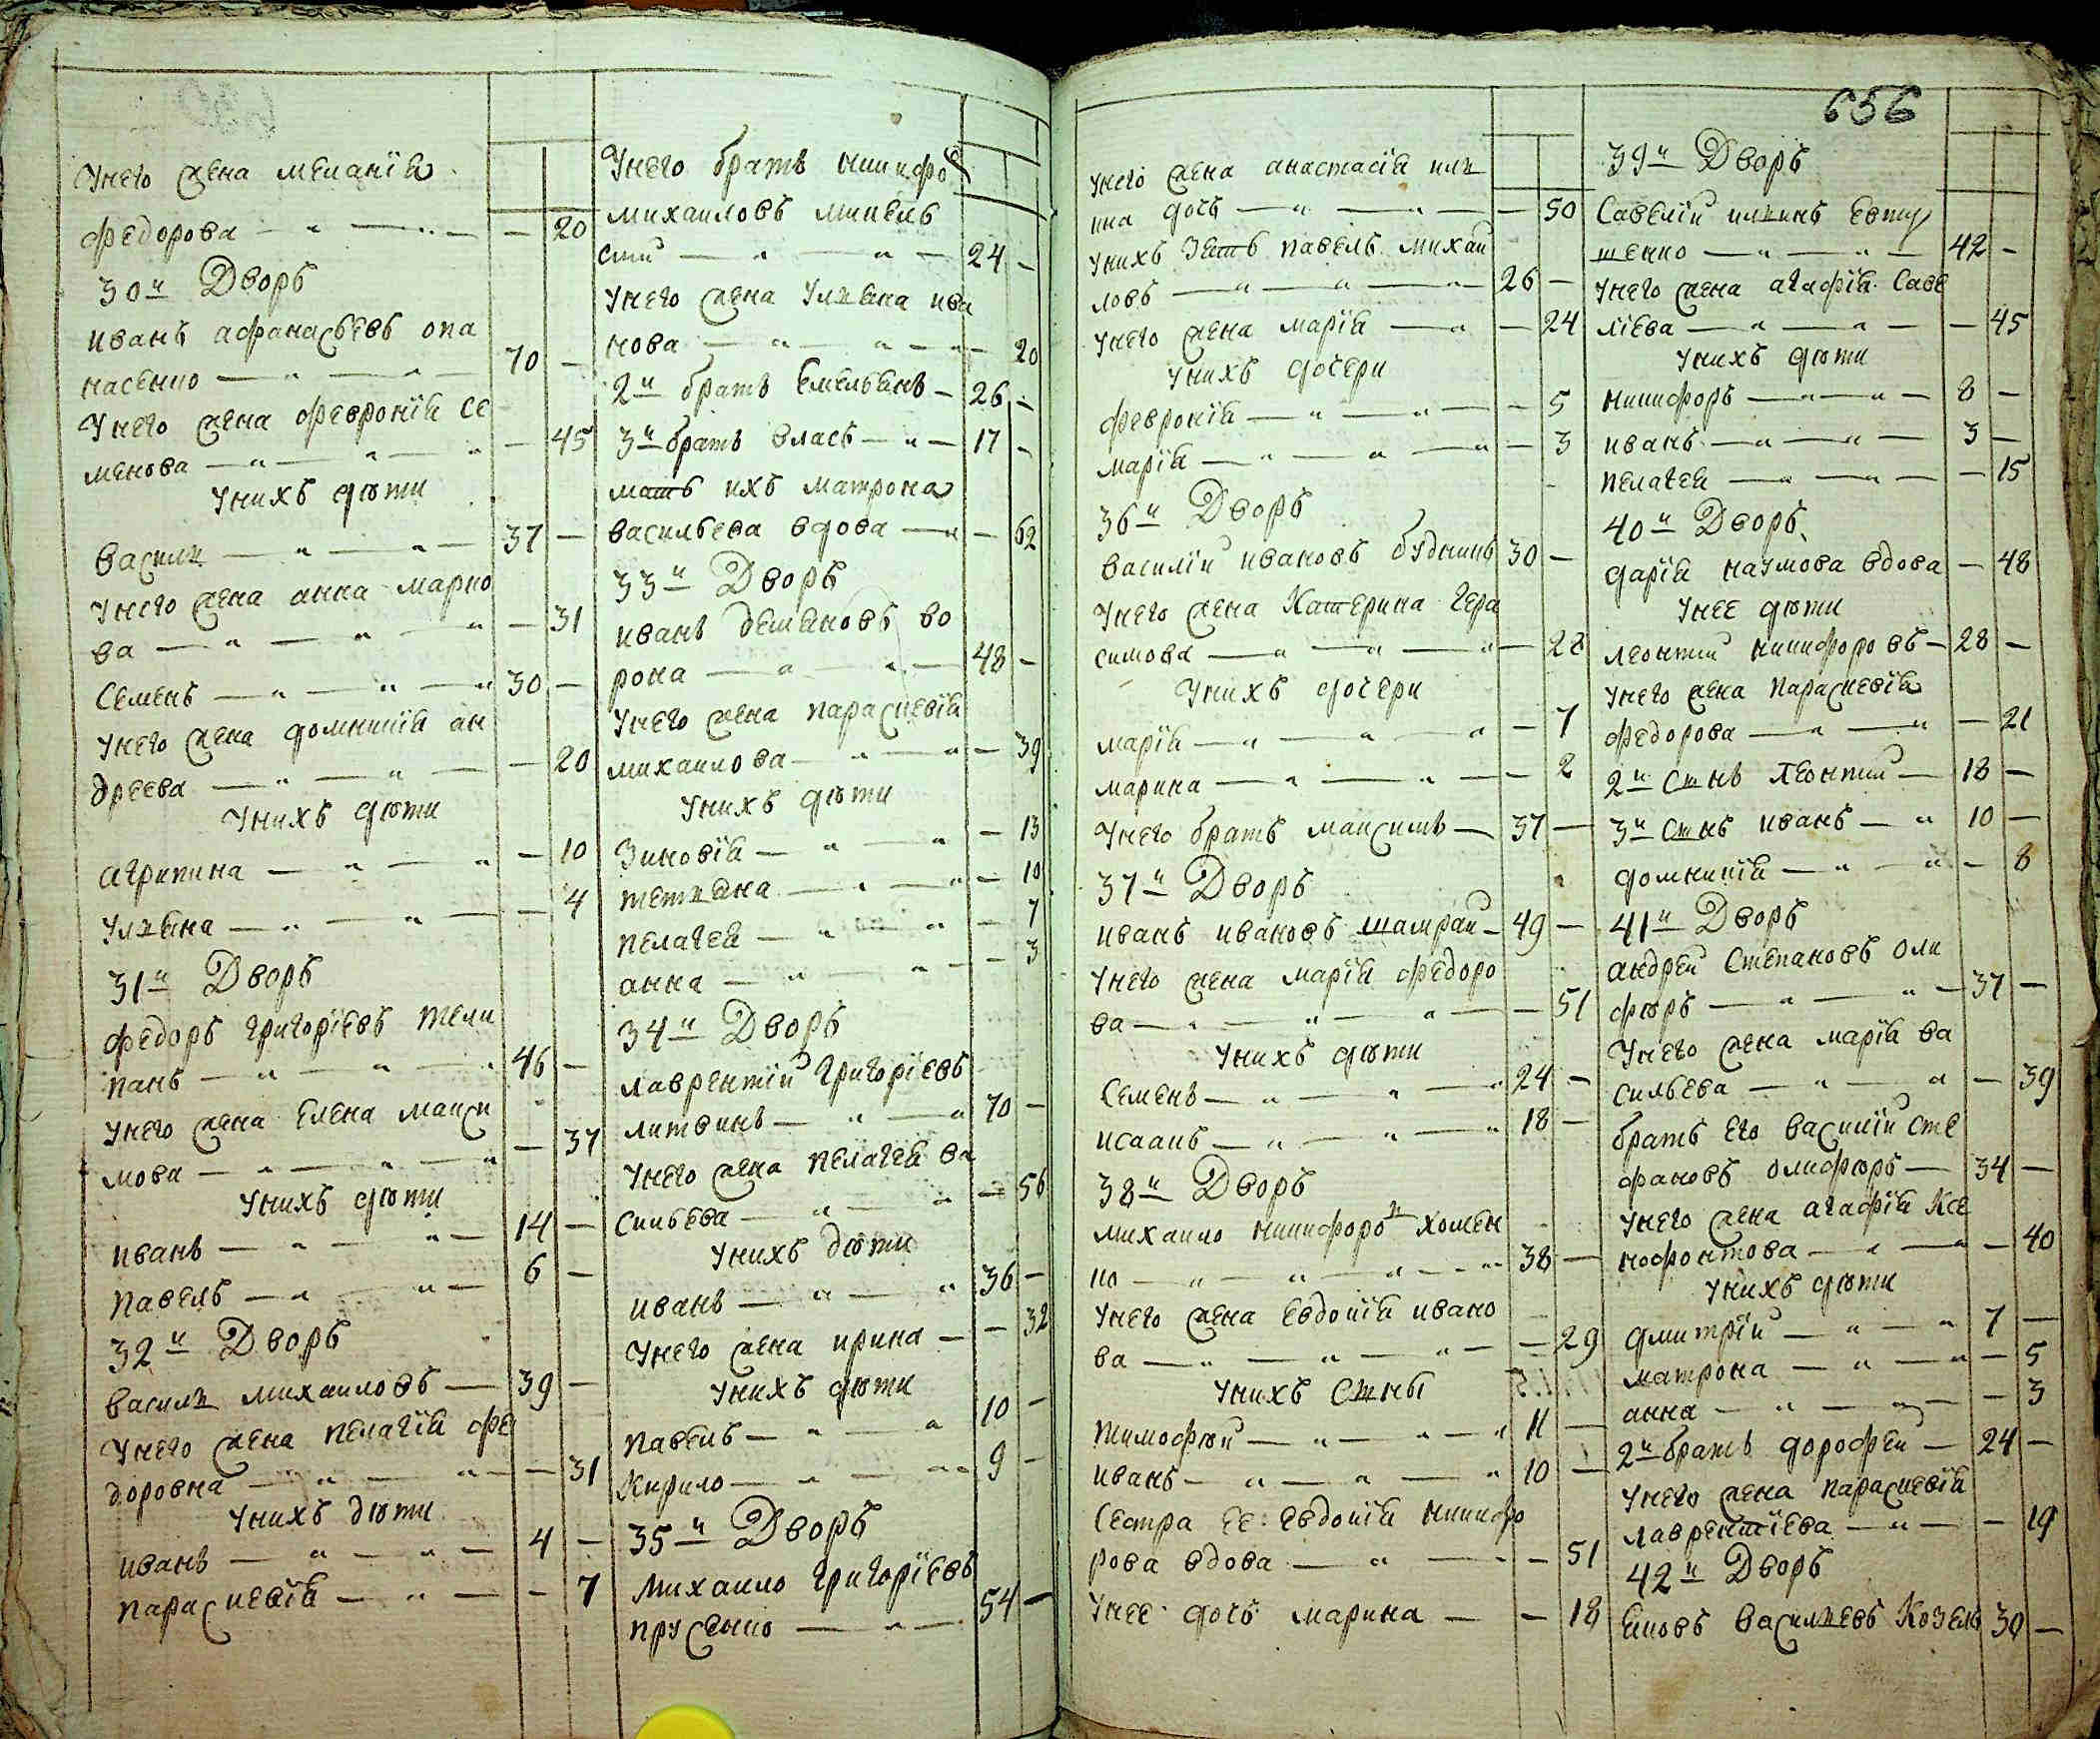 У него жена меланїя
федорова — 20
30й Дворъ
иванъ афанасьевъ опа
насенко — 70 —
У него жена февронїя се
менова — 45
У нихъ дѣти
василь — 37 —
У него жена анна марко
ва — 31
семенъ — 30 —
У него жена домникїя ан
дреева — 20
У нихъ дѣти
агрипина — 10
Ульяна — 4
31й Дворъ
федоръ григорїевъ тели
панъ — 46 —
У него жена елена макси
мова — 37
У нихъ дѣти
иванъ — 14 —
павелъ — 6 —
32й Дворъ
василь михаиловъ — 39 —
У него жена пелагїя фе
доровна — 31
У нихъ дѣти
иванъ — 4 —
параскевїя — 7
У него братъ никифоръ
михаиловъ
24 —
У него жена Ульяна ива
нова — 20
2й братъ емельянъ — 26 —
3й братъ власъ — 17 —
мать ихъ матрона
васильева вдова — 62
33й Дворъ
иванъ демяновъ во
рона — 48 —
У него жена параскевїя
михаилова — 39
У нихъ дѣти
Зиновїя — 13
тетяна — 10
пелагея — 7
анна — 3
34й Дворъ
лаврентїй григорїевъ
литвинъ — 70 —
У него жена пелагея ва
сильева — 56
У нихъ дѣти
иванъ — 36 —
У него жена ирина — 32
У нихъ дѣти
павелъ — 10 —
Кирило — 9 —
35й Дворъ
михаило григорїевъ
прусенко — 54 —
656
У него жена анастасїя иль
ина дочь — 50
У нихъ зять павелъ михаи
ловъ — 26 —
У него жена марїя — 24
У нихъ дочери
февронїя — 5
марїя — 3
36й Дворъ
василїй ивановъ будникъ 30 —
У него жена Катерина гера
симова — 28
У нихъ дочери
марїя — 7
марина — 2
У него братъ максимъ — 37 —
37й Дворъ
иванъ ивановъ шамрай — 49 —
У него жена марїя федоро
ва — 51
У нихъ дѣти
Семенъ — 24 —
исаакъ — 18 —
38й Дворъ
михаило никифоровъ хомен
ко — 38 —
У него жена евдокїя ивано
ва — 29
У нихъ сыны
тимофѣй — 11 —
иванъ — 10 —
Сестра ее евдокїя никифо
рова вдова — 51
У нее дочь марина — 18
39й Дворъ
Савелїй илинъ евту
шенко — 42 —
У него жена агафїя саве
лїева — 45
У нихъ дѣти
никифоръ — 8 —
иванъ — 3 —
пелагея — 15
40й Дворъ
дарїя наумова вдова — 48
У нее дѣти
леонтий никифоровъ — 28 —
У него жена параскевїя
федорова — 21
2й сынъ леонтий — 18 —
3й сынъ иванъ — 10 —
домникїя — 8
41й Дворъ
андрей степановъ оли
фѣръ — 37 —
У него жена марїя ва
сильева — 39
братъ его василїй сте
фановъ олифѣръ — 34 —
У него жена агафїя Ксе
нофонтова — 40
У нихъ дѣти
дмитрїй — 7 —
матрона — 5
анна — 3
2й братъ дорофей — 24 —
У него жена параскевїя
лаврентїева — 19
42й Дворъ
яковъ васильевъ Козелъ 30 —